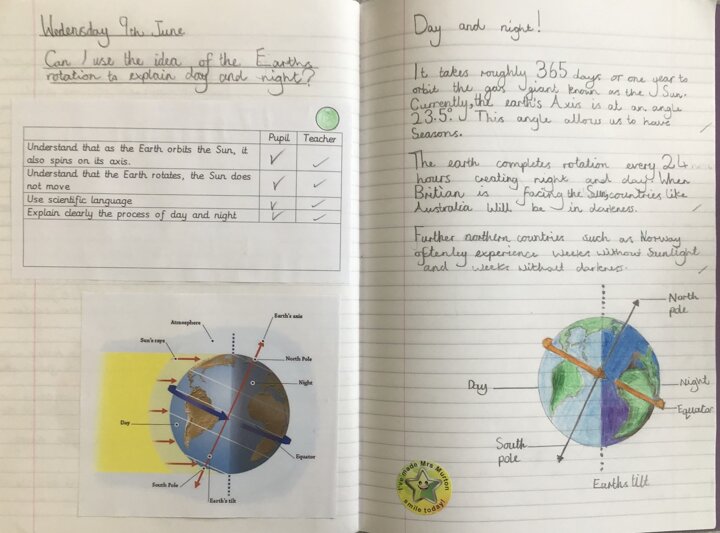 Wednesday 9th June
Can I use the idea of the Earths
rotation to explain day and night?
Pupil Teacher
Understand that as the Earth orbits the Sun, it
also spins on its axis.
Understand that the Earth rotates, the Sun does
not move
Use scientific language
Explain clearly the process of day and night
Earth's axis
Atmosphere
Sun's rays
North Pole
Night
Day
Equator
South Pole
Earth's tilt
Day and night!
It takes roughly 365 days or one year to
orbit the gas giant known as the Sun.
Currently, the earth's Axis is at an angle
23.5°. This angle allows us to have
Seasons.
The earth completes rotation every 24
hours creating night and day. When
Britian is facing the Sun, countries like
Australia will be in darkness.
Further northern countries such as Norway
oftenley experience weeks without Sunlight
and weeks without darkness.
North
pole
Day
Night
Equator
South
pole
Earths tilt
I've made Mrs Murton
smile today!